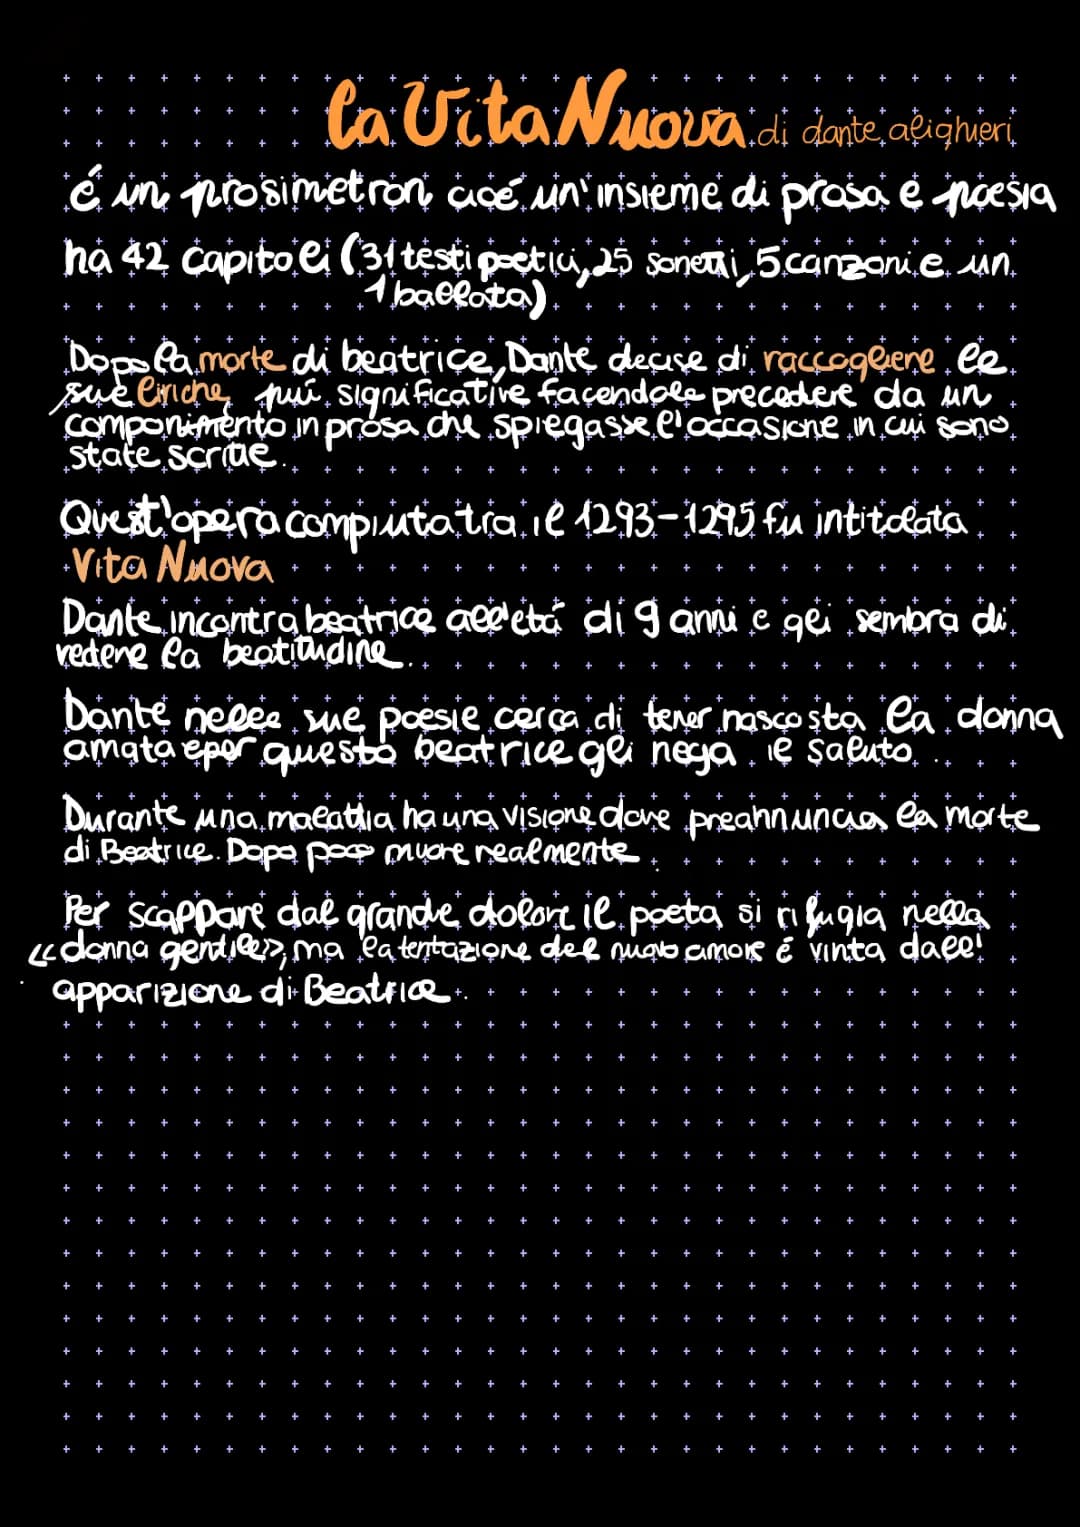 la Vita Nuova di dante alighieri
é un prosimetron cioé un'insieme di prosa e poesia
ha 42 capitoli (31 testi poetici, 25 sonetti, 5 canzoni e un
1 ballata)
Dopo la morte di beatrice, Dante decise di raccogliere le
sue liriche più significative facendole precedere da un
componimento in prosa che spiegasse l'occasione in cui sono
state scritte.
Quest'opera compiuta tra il 1293-1295 fu intitolata
Vita Nuova
Dante incontra beatrice all'etá di 9 anni e gli sembra di
vedere la beatitudine.
Dante nelle sue poesie cerca di tener nascosta la donna
amata e per questo beatrice gli nega il saluto.
Durante una malattia ha una visione dove preannuncia la morte
di Beatrice. Dopo poco muore realmente
Per scappare dal grande dolore il poeta si rifugia nella
<<donna gentile>>, ma la tentazione del nuovo amore é vinta dall'
apparizione di Beatrice.